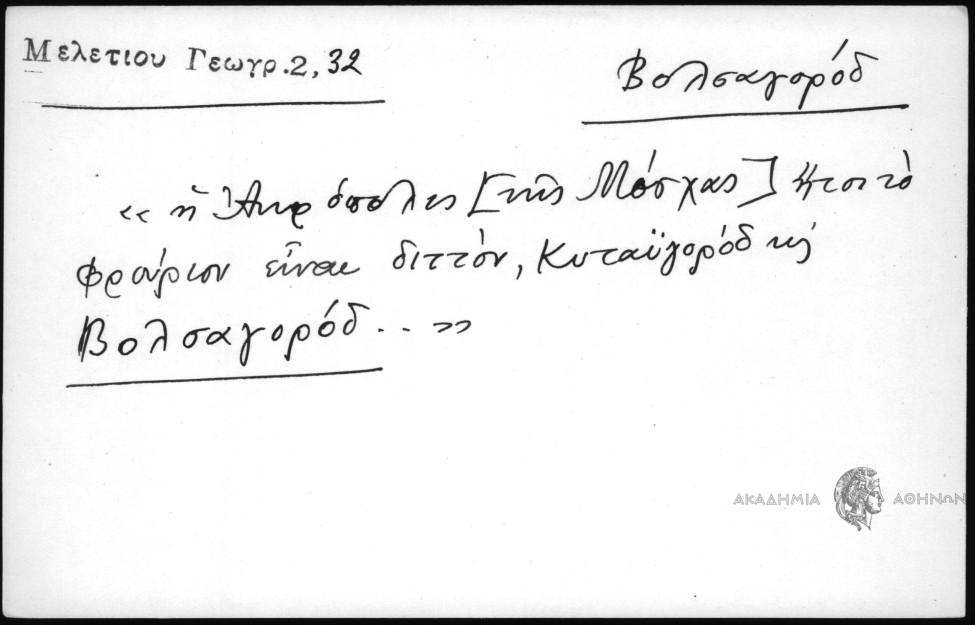 Μελετιου Γεωγρ. 2, 32
Βολσαγορόδ
« ἡ Ἀκρόπολις [τῆς Μόσχας] ἤτοι τὸ
φρούριον εἶναι διττόν, Κυταϋγορόδ κ̀
Βολσαγορόδ . . »
ΑΚΑΔΗΜΙΑ ΑΘΗΝΩΝ